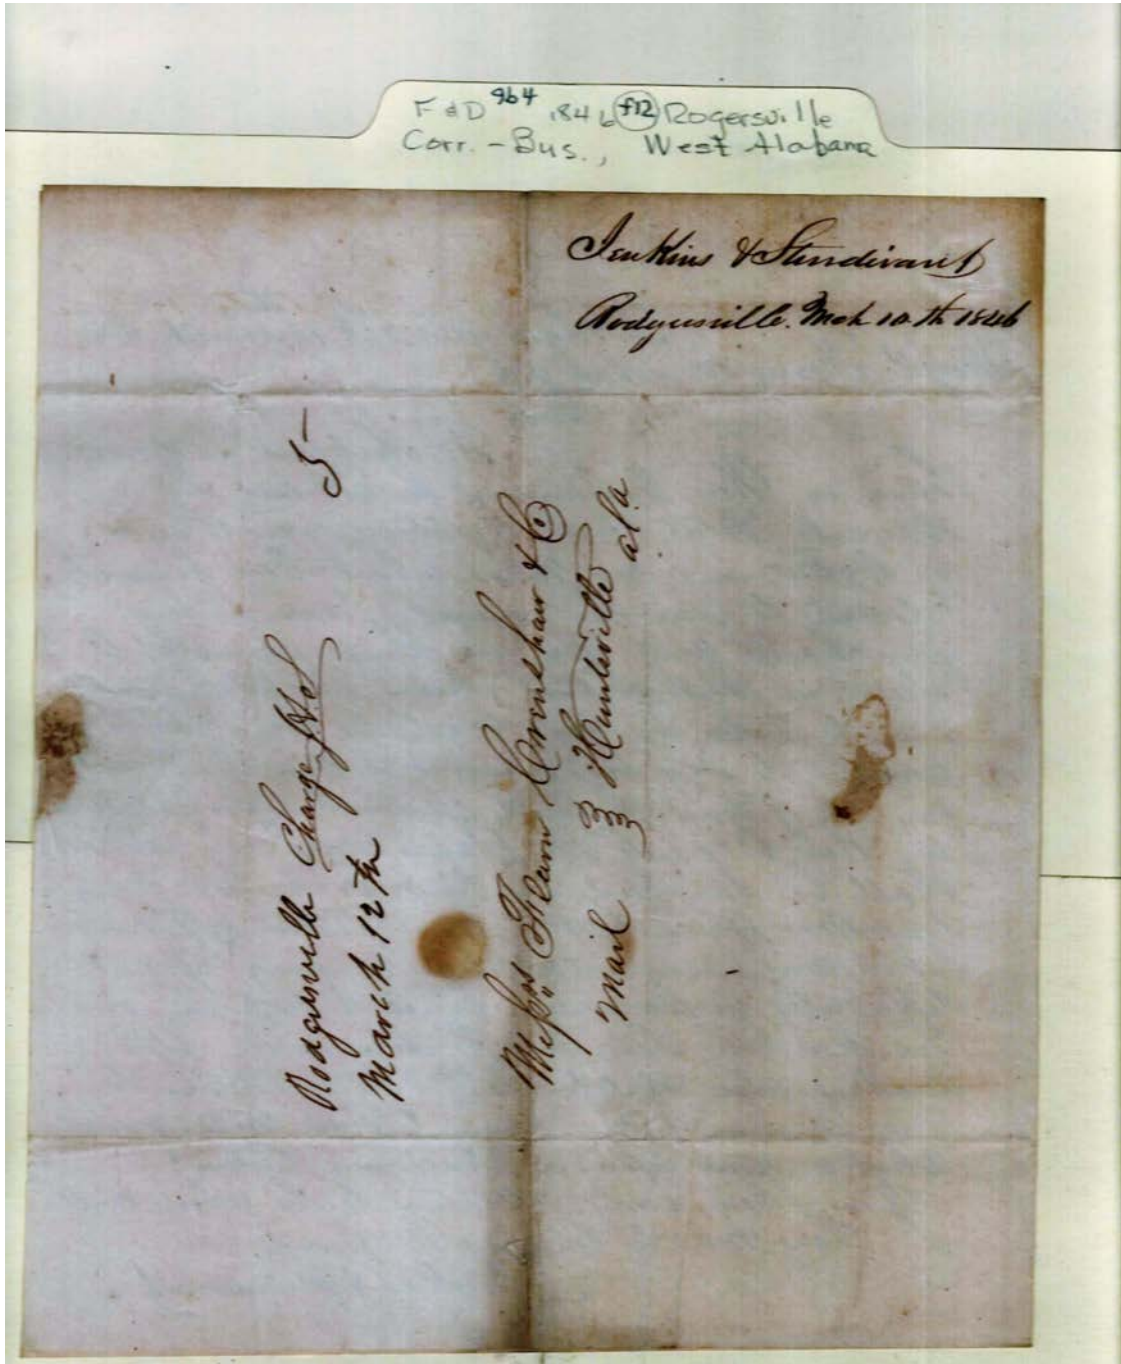 F & D 964 1846 f12 Rogersville
Corr. - Bus., West Alabama
Jenkins & Sturdivant
Rodgersville. Mch 10th 1846
Rodgersville Charge
5
March 12th
Messrs Fearn Crenshaw & Co
Mail Huntsville ala